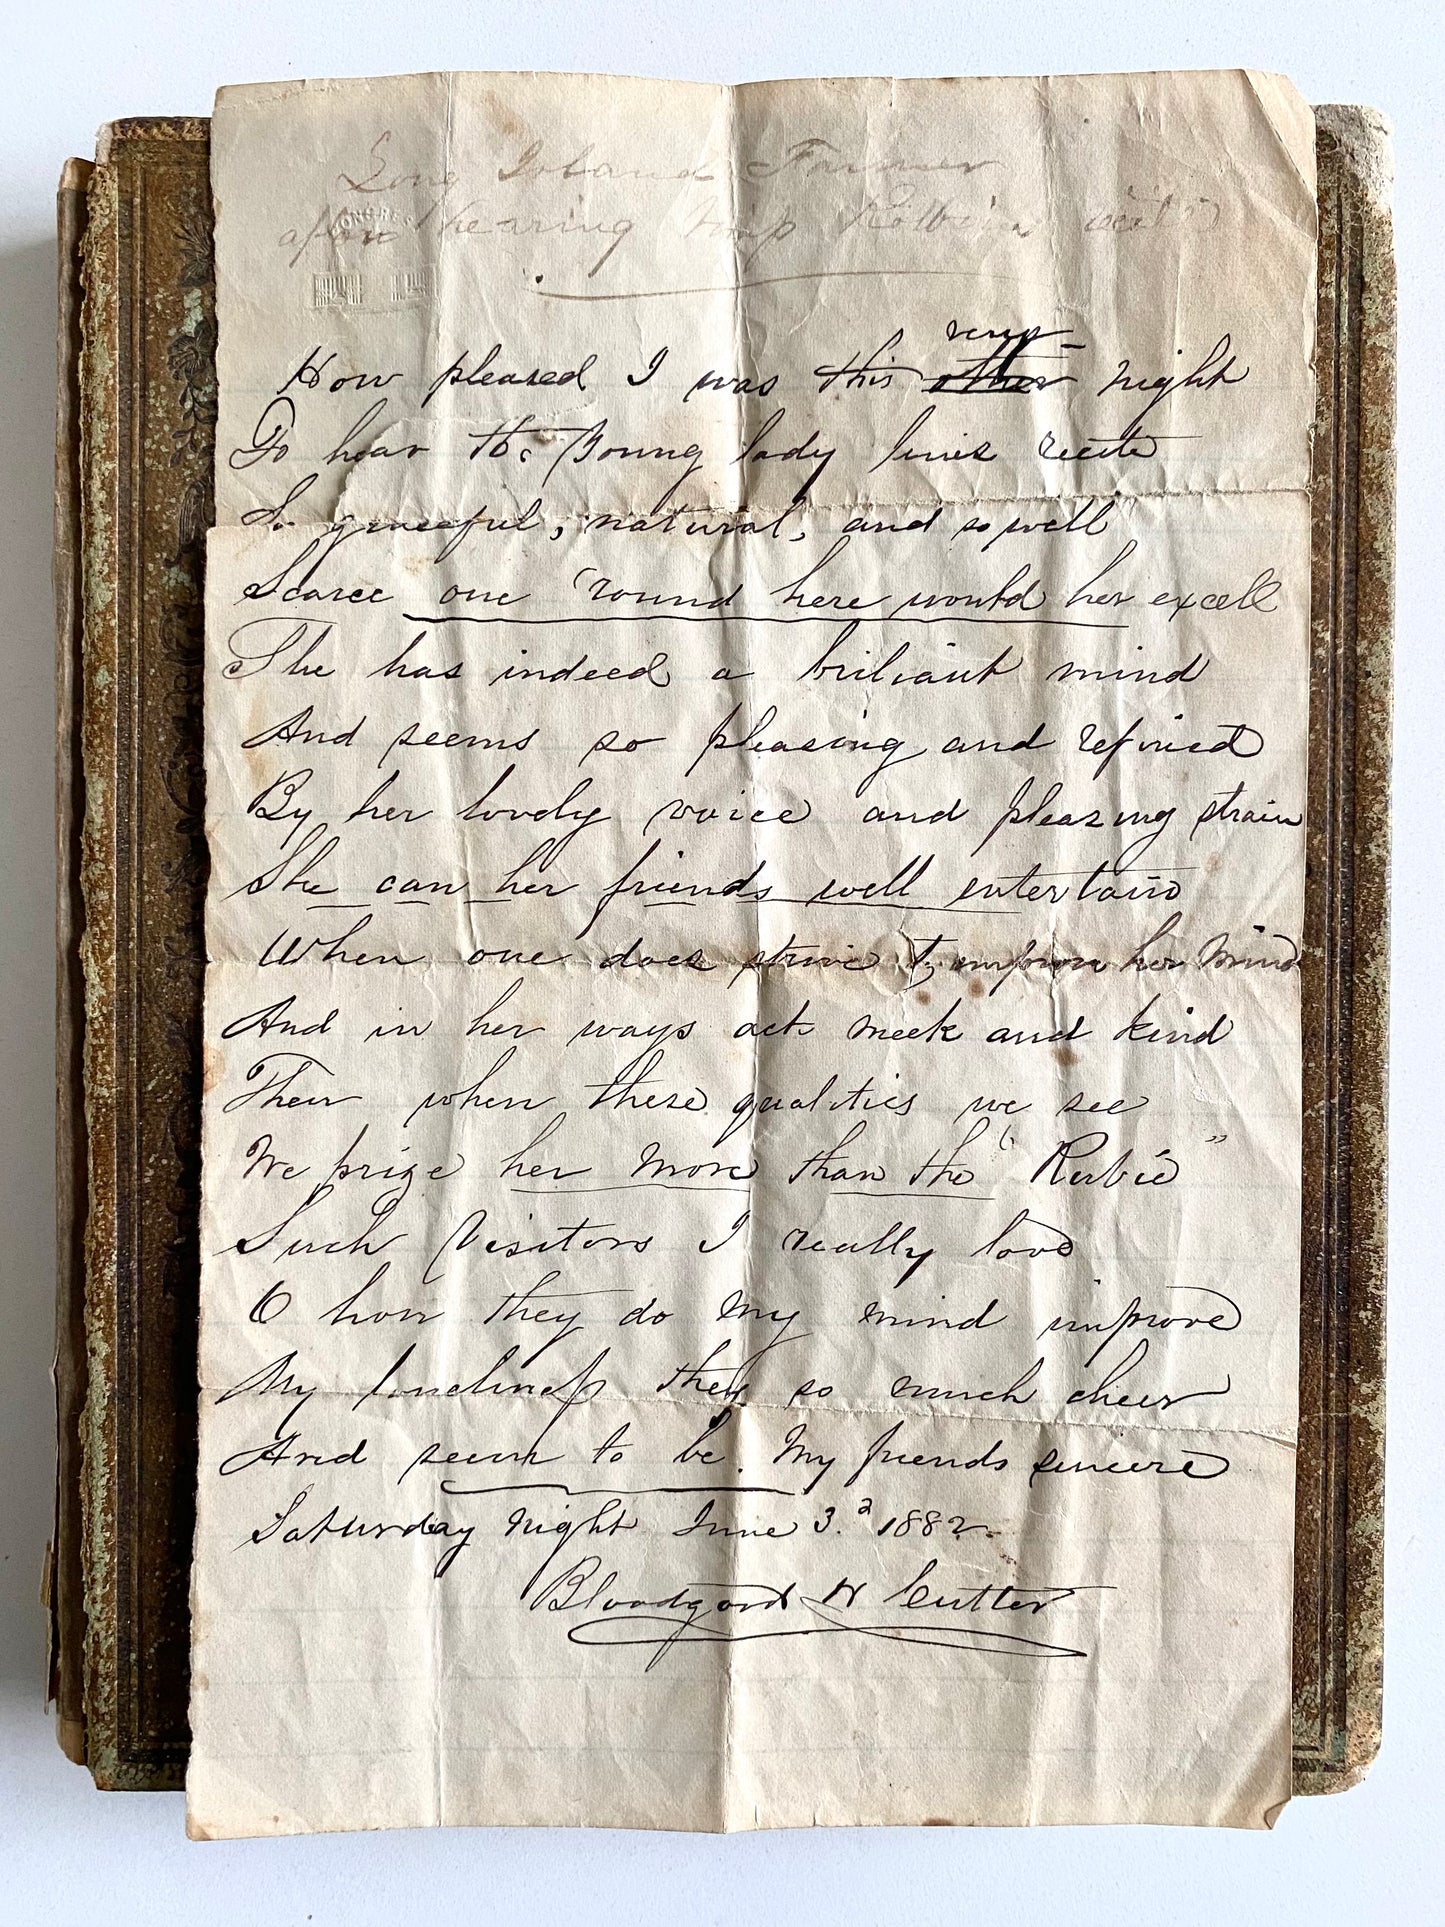 Long Island Farmer
after hearing Miss Robbins recite
CONGRESS
very
How pleased I was this other night
To hear the Young lady lines recite
So graceful, natural, and so well
Scarce one 'round here would her excell
She has indeed a briliant mind
And seems so pleasing and refined
By her lovely voice and pleasing strain
She can her friends well entertain
When one does strive to improve her mind
And in her ways acts meek and kind
Then when these qualities we see
We prize her more than the "Rubie"
Such Visitors I really love
O how they do my mind improve
My loneliness they so much cheer
And seem to be my friends sincere
Saturday night June 3.d 1882.
Bloodgood H Cutter